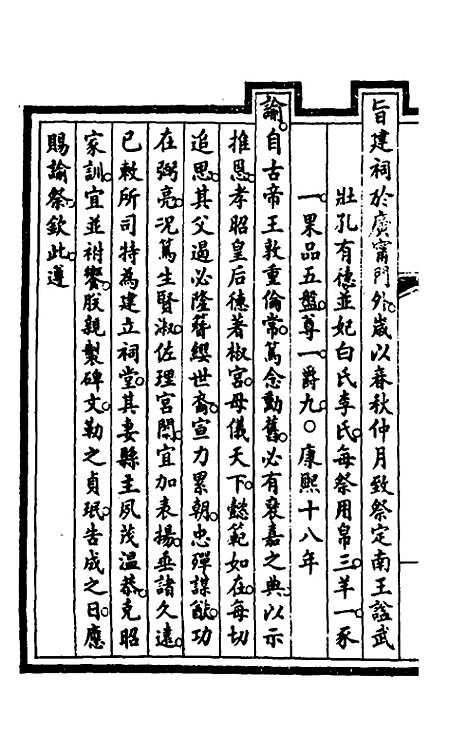 旨建祠於廣甯門外歲以春秋仲月致祭定南王諡武
壯孔有德並妃白氏李氏每祭用帛三羊一豕
一果品五盤尊一爵九○康熙十八年
諭自古帝王敦重倫常篤念勳舊必有襃嘉之典以示
推恩孝昭皇后德著椒宮母儀天下懿範如在每切
追思其父遏必隆簪纓世裔宣力累朝忠殫謀猷功
在弼亮況篤生賢淑佐理宮閫宜加表揚垂諸久遠
已敕所司特為建立祠堂其妻縣主夙茂溫恭克昭
家訓宜並祔饗朕親製碑文勒之貞珉告成之日應
賜諭祭欽此遵